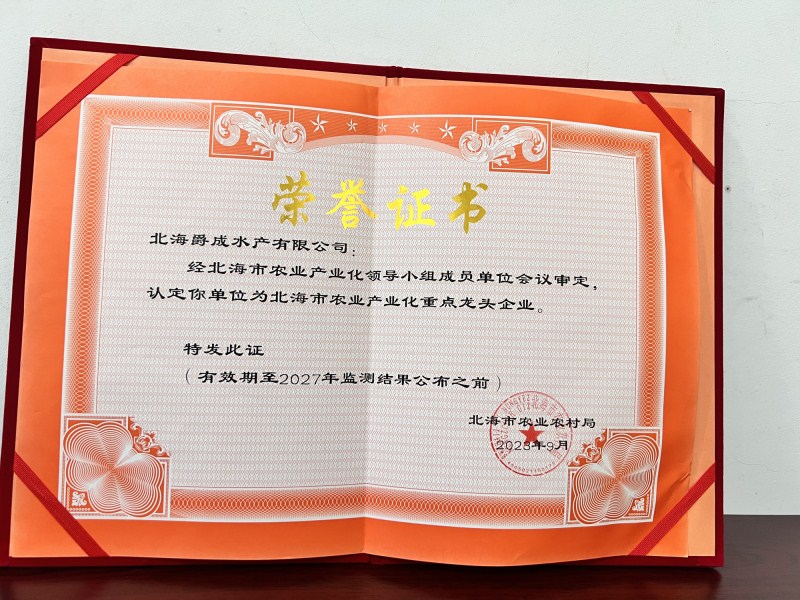 荣誉证书
北海爵成水产有限公司：
经北海市农业产业化领导小组成员单位会议审定，
认定你单位为北海市农业产业化重点龙头企业。
特发此证
（有效期至2027年监测结果公布之前）
北海市农业农村局
2025年9月